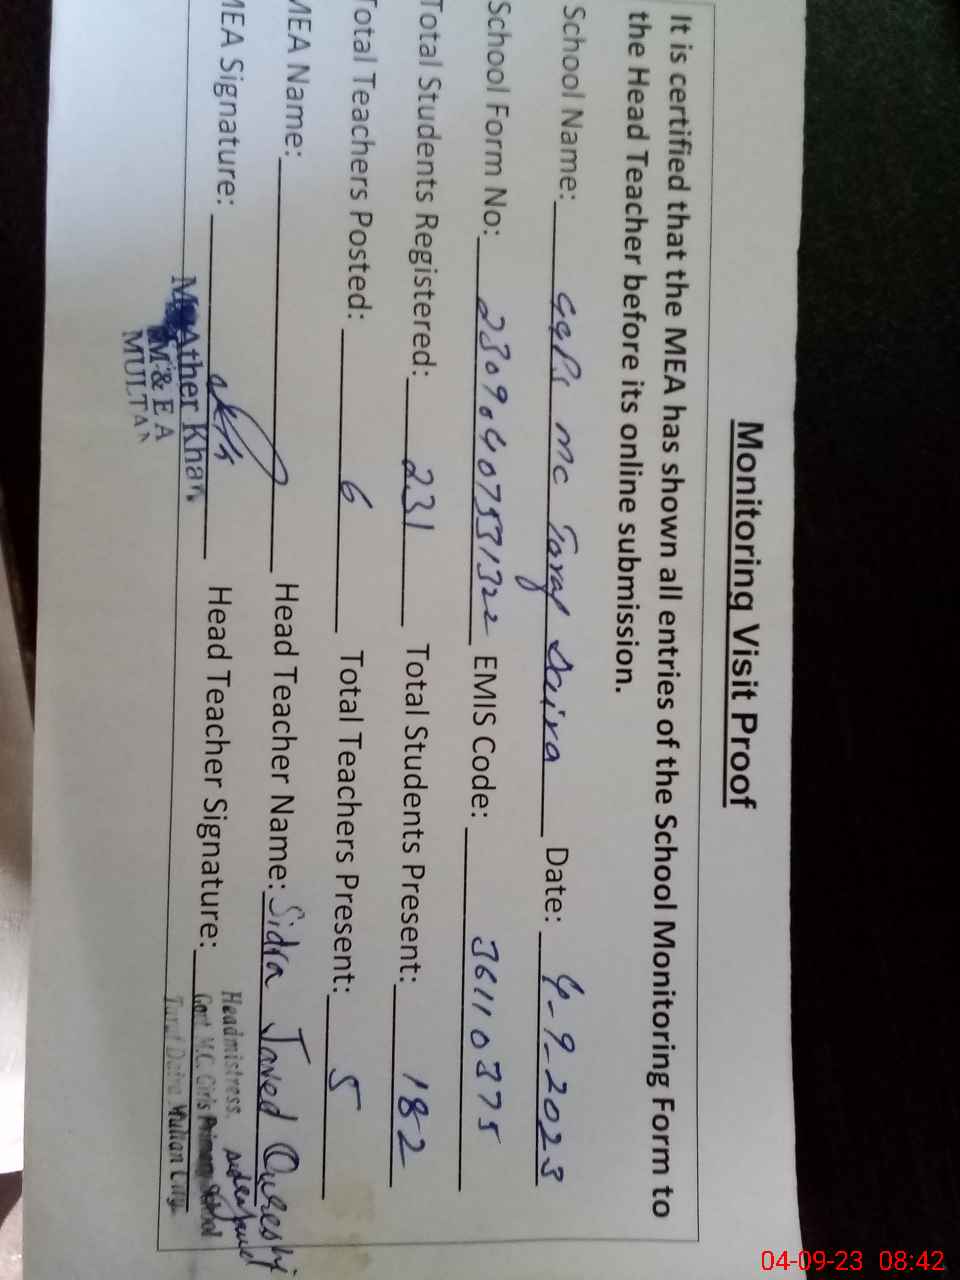 Monitoring Visit Proof
It is certified that the MEA has shown all entries of the School Monitoring Form to
the Head Teacher before its online submission.
School Name: GGPS MC Taraf Daira Date: 4-9-2023
School Form No: 23090407531322 EMIS Code: 36110375
Total Students Registered: 231 Total Students Present: 182
Total Teachers Posted: 6 Total Teachers Present: 5
MEA Name: Head Teacher Name: Sidra Javed Qureshi
MEA Signature: Head Teacher Signature:
Ather Khan
M & E A
MULTAN
Headmistress.
Govt M.C. Girls Primary School
Taraf Daira Multan City.
04-09-23 08:42